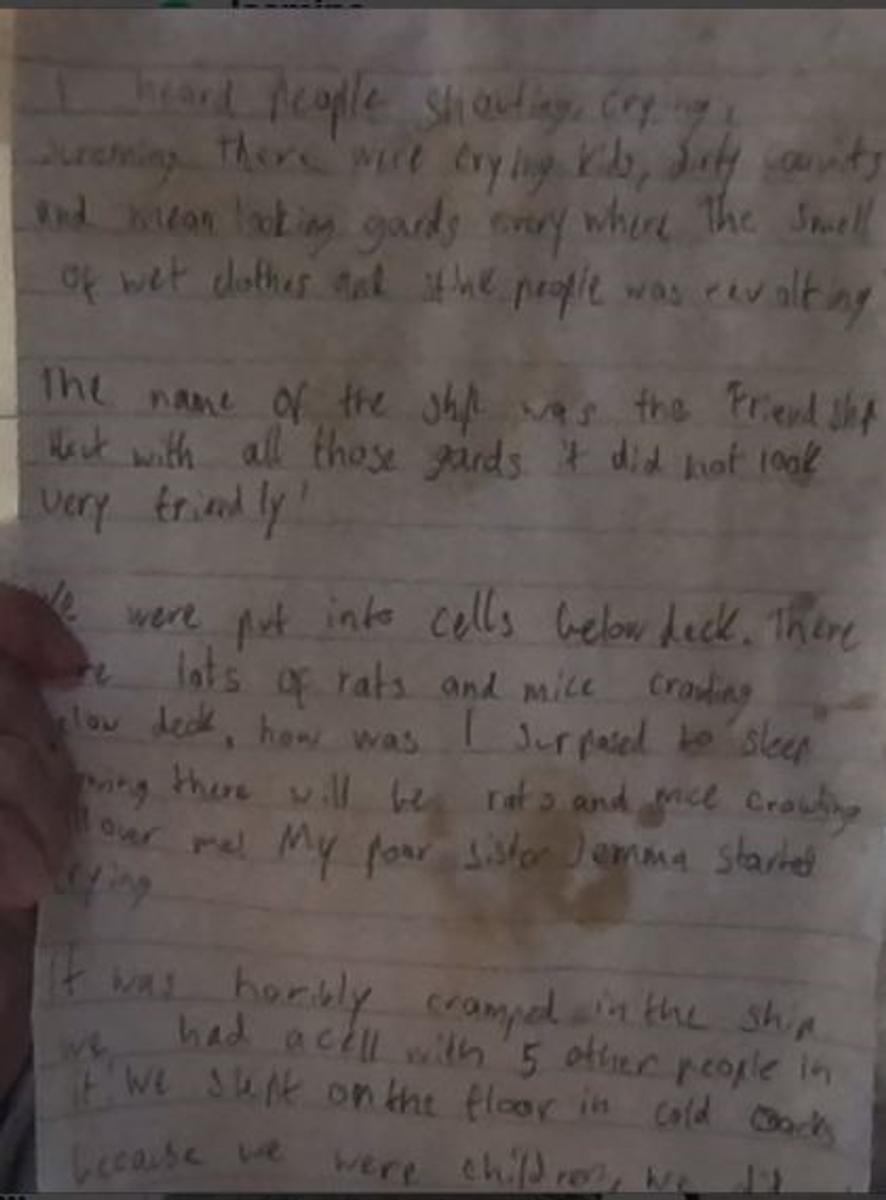 I heard people shouting, crying,
screming There were crying kids, dirty
and mean looking gards every where The smell
of wet clothes and the people was revolting
The name of the ship was the Friendship
But with all those gards it did not look
very friendly!
We were put into cells below deck. There
lots of rats and mice crawling
below deck, how was I surposed to sleep
there will be rats and mice crawling
all over me! My poor sister Jemma started
crying
It was horibly cramped in the ship
we had a cell with 5 other people in
it we slept on the floor in cold
because we were children, we